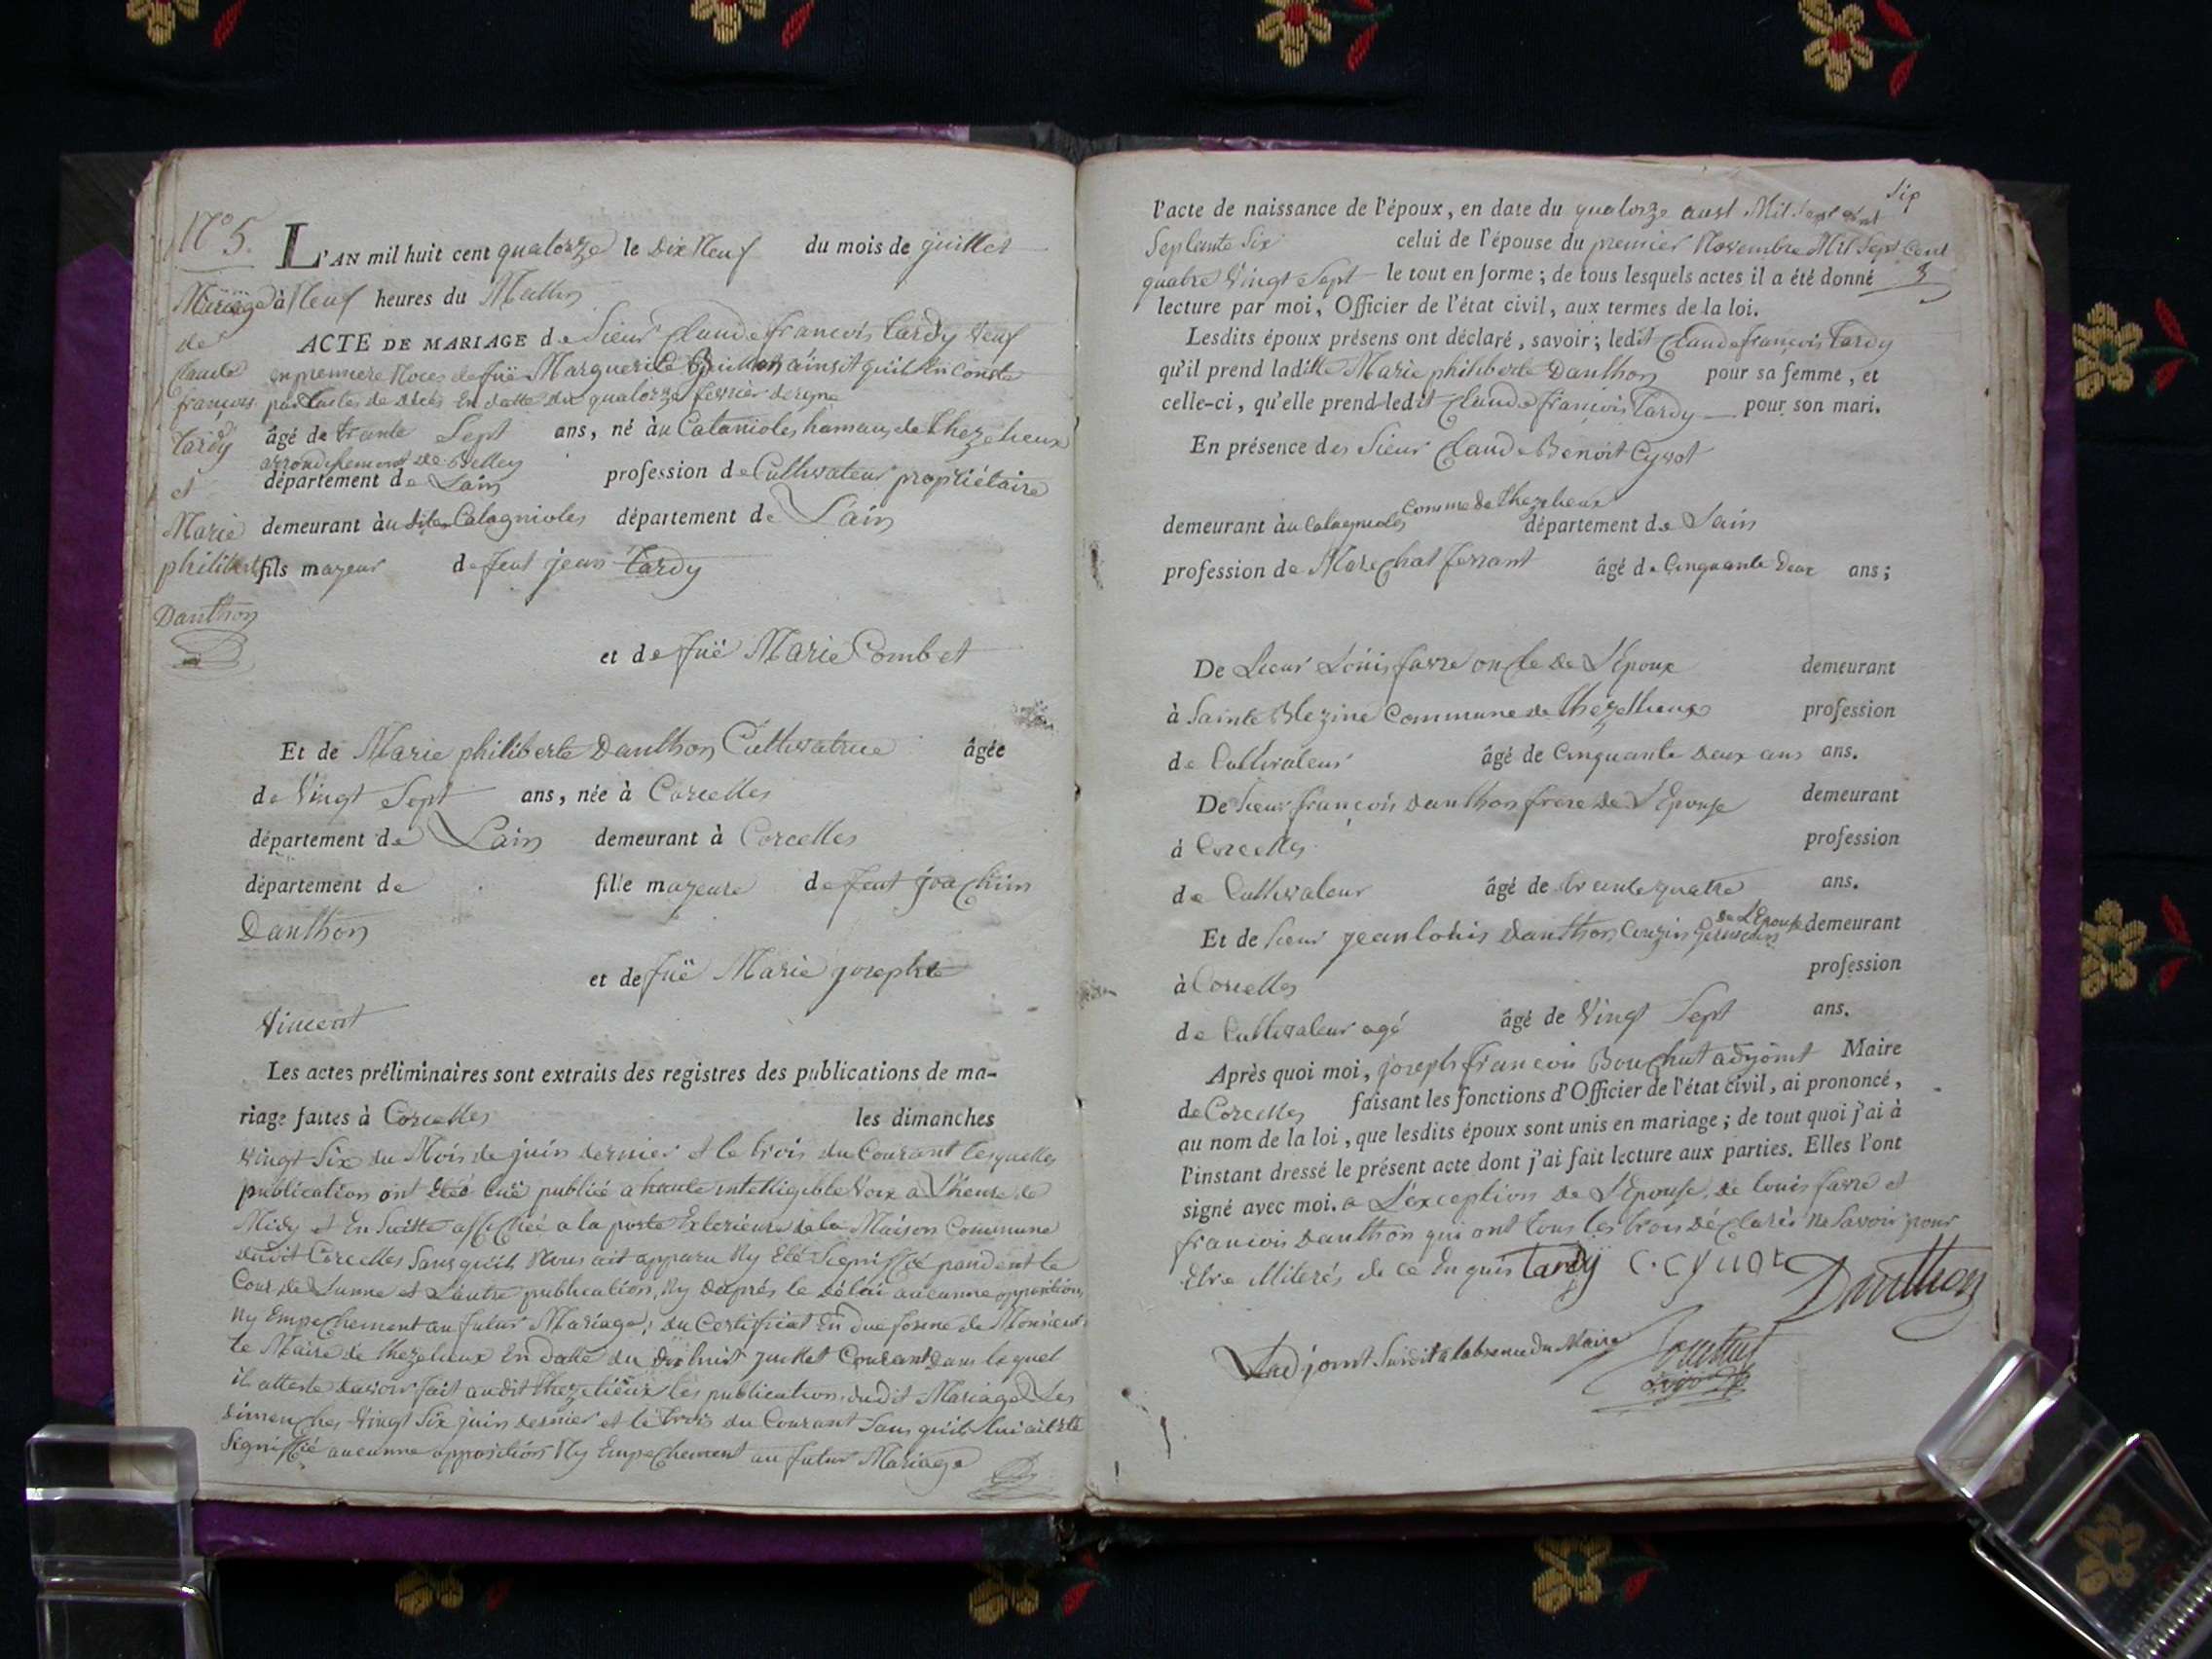 N° 5.
L'AN mil huit cent quatorze le Dix Neuf du mois de juillet
à Neuf heures du Mattin
Mariage
de
Claude
françois
Tardy
et
Marie
philiberte
Danthon
ACTE DE MARIAGE de Sieur Claude françois Tardy Veuf
en premiere Noces de fuë Marguerite ainsit qu'il en conste
par Lactes de décès En datte du quatorze fevrier
âgé de trente Sept ans, né àu Catanioles hamaux de thezelieux
arrondissement de Belley
département de Lain profession de Cultivateur propriétaire
demeurant àu Catagnioles département de L'ain
fils mayeur de feut jean Tardy
et de fuë Marie Combet
Et de Marie philiberte Danthon Cultivatrice âgée
de Vingt Sept ans, née à Corcelles
département de Lain demeurant à Corcelles
département de fille mayeure de feut joachim
Danthon
et de fuë Marie josephte
Vincent
Les actes préliminaires sont extraits des registres des publications de ma-
riage faites à Corcelles les dimanches
vingt Six du Mois de juin dernier et le trois du Courant lesquelles
publication ont Etéé luë publié a haute intelligible Voix a L'heure de
Midy et En Suitte affichéé a la porte Exterieure de la Maison Commune
dudit Corcelles Sans qu'il Nous ait apparu Ny Eté Signiffié pandent le
Cour de Lunne et Lautre publication, Ny daprés le délai aucunne opposition,
Ny Empechement au futur Mariage; du Certificat En due forme de Monsieur
le Maire de thezelieux En datte du dix huit juillet Courant dans lequel
il atteste davoir fait audit thezelieux les publication dudit Mariage Les
dimenches Vingt Six juin dernier et le trois du Courant Sans qu'il lui ait été
Signiffié aucunne opposition Ny Empechement au futur Mariage
l'acte de naissance de l'époux, en date du quatorze aust Mil Sept Cent
Septante Six celui de l'épouse du premier Novembre Mil Sept Cent
quatre Vingt Sept le tout en forme; de tous lesquels actes il a été donné
lecture par moi, Officier de l'état civil, aux termes de la loi.
Lesdits époux présens ont déclaré, savoir; ledit Claude françois Tardy
qu'il prend laditte Marie philiberte Danthon pour sa femme, et
celle-ci, qu'elle prend ledit Claude françois Tardy pour son mari.
En présence des Sieur Claude Benoit Cyvot
comme de thezelieux
demeurant àu Catagnioles département de Lain
profession de Marechat ferrant âgé de Cinquante Deux ans;
De Sieur Louis favre oncle de L'Epoux demeurant
à Sainte Blezine Commune de thezellieux profession
de Cultivateur âgé de Cinquante deux ans ans.
De Sieur françois Danthon frere de L'Epouse demeurant
à Corcelles profession
de Cultivateur âgé de trente quatre ans.
de L'Epouse
Et de Sieur jean louis Danthon Couzin Germain demeurant
à Corcelles profession
de Cultivateur agé âgé de Vingt Sept ans.
Après quoi moi, joseph françois Bouchut adyoint Maire
de Corcelles faisant les fonctions d'Officier de l'état civil, ai prononcé,
au nom de la loi, que lesdits époux sont unis en mariage; de tout quoi j'ai à
l'instant dressé le présent acte dont j'ai fait lecture aux parties. Elles l'ont
signé avec moi. a L'exception de L'Epouse, de louis favre et
francois Danthon qui ont tous les trois déclarés Ne Savoir pour
Etre Literés de ce Enquis Tardÿ C. Cyuot Danthon
Ladjoint Susdit a labsence du Maire Bouchut
adjoint